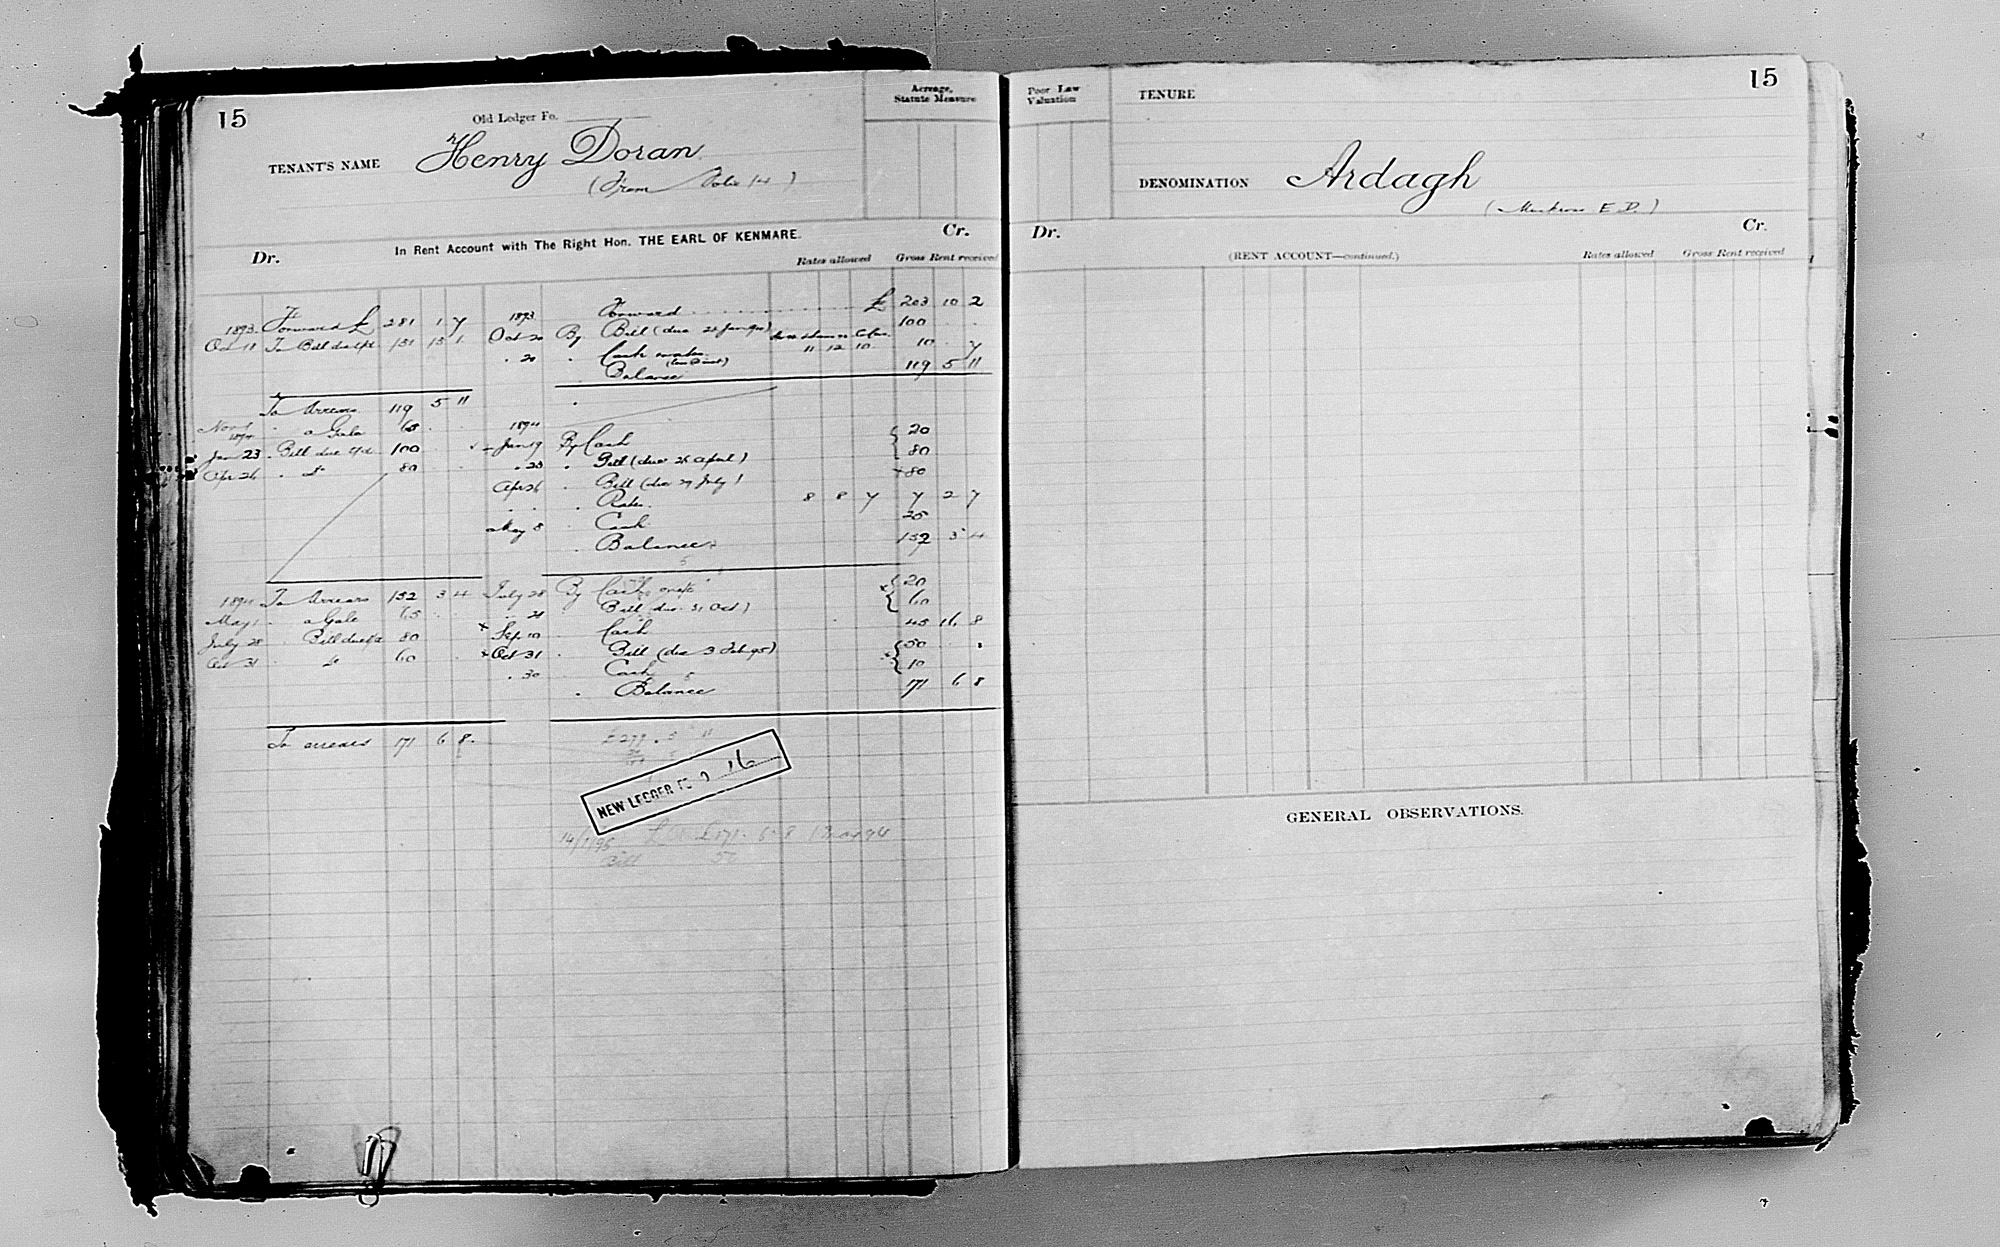 15
Old Ledger Fo.
Acreage, Statute Measure
TENANT'S NAME Henry Doran
(From Folio 14)
In Rent Account with The Right Hon. THE EARL OF KENMARE.
Dr. Cr.
Rates allowed Gross Rent received
1893. To Forward £ 281 1 7 1893 Forward £ 203 10 2
Oct 11 To Bill due 151 15 1 Oct 20 By Bill (due 21 Jan 94) 100
" 20 " Cash 11 12 10 10 7
Balance 119 5 11
To Arrears 119 5 11
Nov 1 " a Gale 65 1894
1894 Jan 23 " Bill due 100 Jan 19 By Cash 20
Apr 26 " do 80 " 23 " Bill (due 26 April) 80
Apr 26 " Bill (due 29 July) 80
" " Rates 8 8 7 7 2 7
May 8 " Cash 25
" Balance 152 3 4
1894 To Arrears 152 3 4 July 28 By Cash 20
May 1 " a Gale 65 " 28 Bill due 31 Oct) 60
July 28 " Bill due 80 Sep 10 Cash 45 16 8
Oct 31 " do 60 Oct 31 " Bill (due 3 Feb 95) 50
" 30 Cash 10
" Balance 171 6 8
To arrears 171 6 8.
£277 . 5 11
NEW LEDGER FO 16
14/1/95 £171. 6. 8
Bill 50
15
Poor Law Valuation
TENURE
DENOMINATION Ardagh
(Muckross E.D.)
Dr. Cr.
(RENT ACCOUNT—continued.) Rates allowed Gross Rent received
GENERAL OBSERVATIONS.